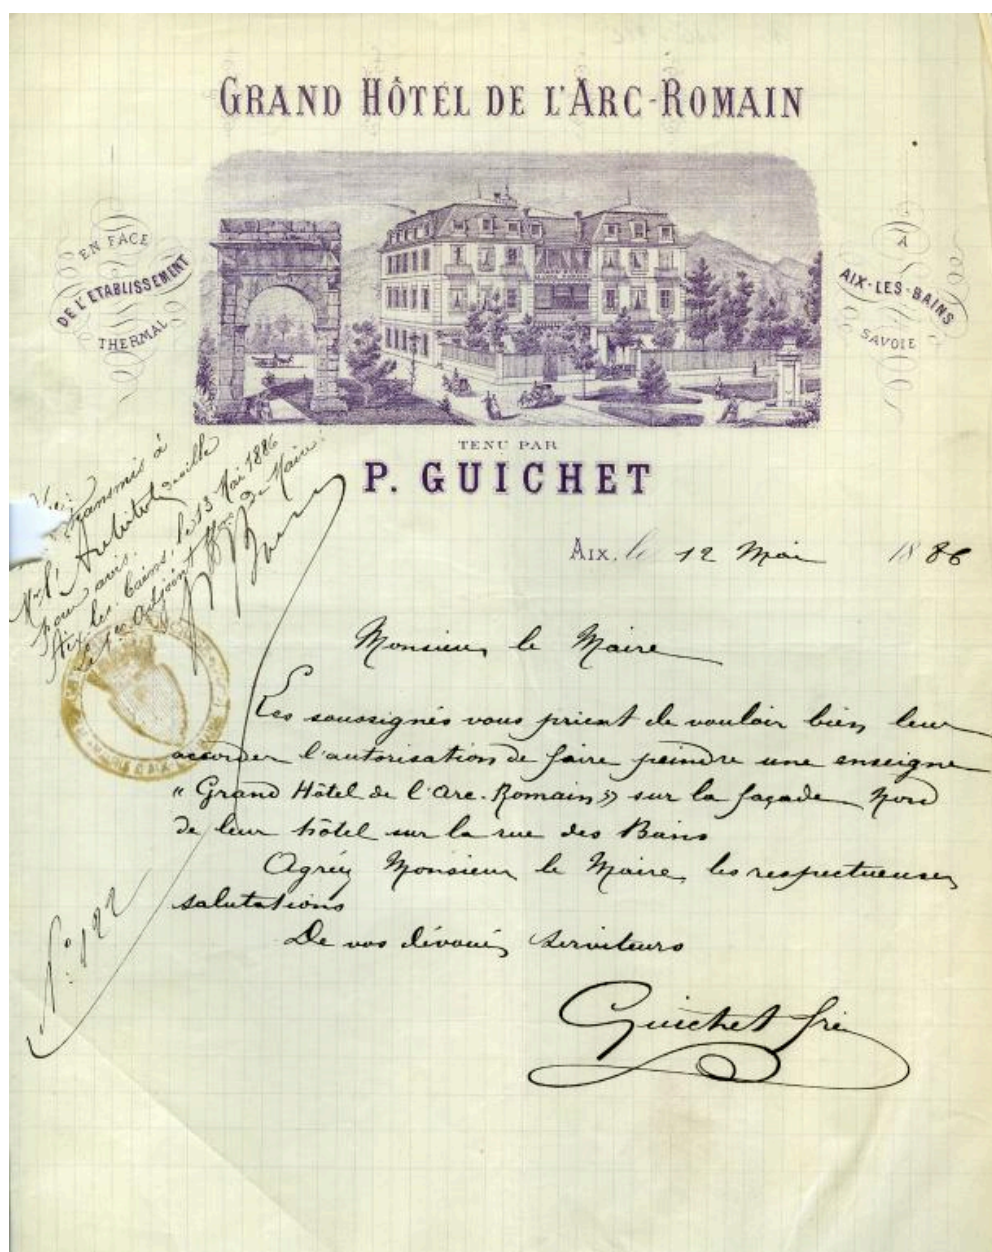 GRAND HÔTEL DE L'ARC-ROMAIN
EN FACE
DE L'ETABLISSEMENT
THERMAL
A
AIX-LES-BAINS
SAVOIE
TENU PAR
P. GUICHET
AIX, le 12 Mai 1886
Transmis à
Mr l'Architecte de ville
pour avis.
Aix les bains, le 13 Mai 1886
Nº: 122
Monsieur le Maire
Les soussignés vous prient de vouloir bien leur
accorder l'autorisation de faire peindre une enseigne
" Grand Hôtel de l'Arc-Romain » sur la façade Nord
de leur hôtel sur la rue des Bains
Agréez Monsieur le Maire, les respectueuses
salutations
De vos dévoués serviteurs
Guichet